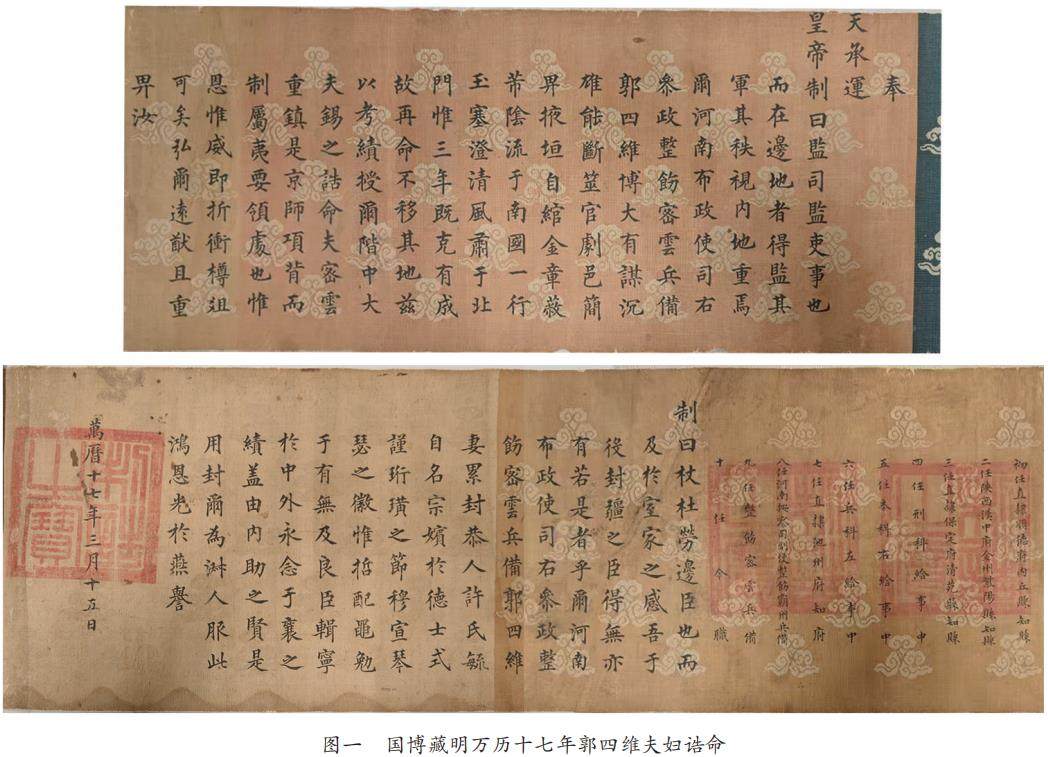 奉
天承運
皇帝制曰監司監吏事也
而在邊地者得監其
軍其秩視內地重焉
爾河南布政使司右
叅政整飭密雲兵備
郭四維博大有謀沉
雄能斷筮官劇邑簡
畀掖垣自綰金章蔽
芾陰流于南國一行
玉塞澄清風肅于北
門惟三年既克有成
故再命不移其地茲
以考績授爾階中大
夫錫之誥命夫密雲
重鎮是京師項背而
制屬夷要領處也惟
恩惟威即折衝樽俎
可矣弘爾遠猷且重
畀汝
初任直隸順德府內丘縣知縣
二任陝西漢中府金州陽縣知縣
三任直隸保定府清苑縣知縣
四任刑科給事中
五任本科右給事中
六任兵科左給事中
七任直隸池州府知府
八任河南按察司副使整飭霸州兵備
九任整飭密雲兵備
十任今職
制曰杕杜勞邊臣也而
及於室家之感吾于
後封疆之臣得無亦
有若是者乎爾河南
布政使司右叅政整
飭密雲兵備郭四維
妻累封恭人許氏毓
自名宗嬪於德士式
謹珩璜之節穆宣琴
瑟之徽惟哲配黽勉
于有無及良臣輯寧
於中外永念于襄之
績盖由內助之賢是
用封爾為淑人服此
鴻恩光於燕譽
萬曆十七年三月十五日
制誥之寶
图一 国博藏明万历十七年郭四维夫妇诰命